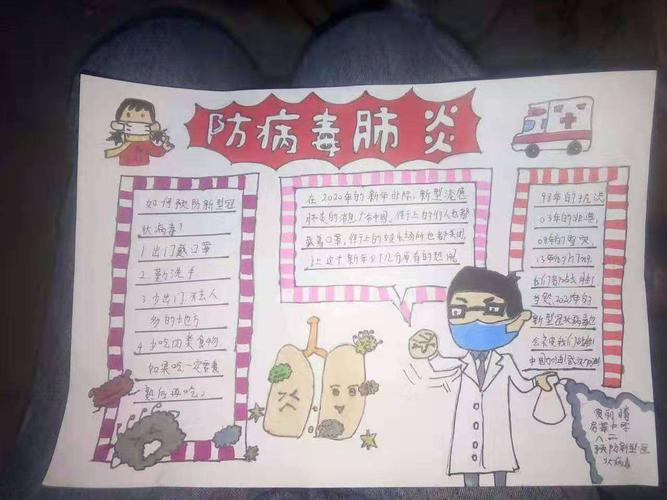 防病毒肺炎
如何预防新型冠
状病毒?
1 出门戴口罩
2 勤洗手
3 少出门,不去人
多的地方
4 少吃肉类食物
如果吃一定要煮
熟后再吃。
在2020年的新年非际,新型流感
肺炎的消息
街上的行人也都
戴着口罩,街上的娱乐场所也都关闭
让这个新年少了几分原有的热闹
98年的洪流
03年的非典
08年的雪灾
我们都战胜
当然2020年的
新型冠状病毒也
会被我们战胜
中国加油武汉加油
八.二
预防新型冠
状病毒